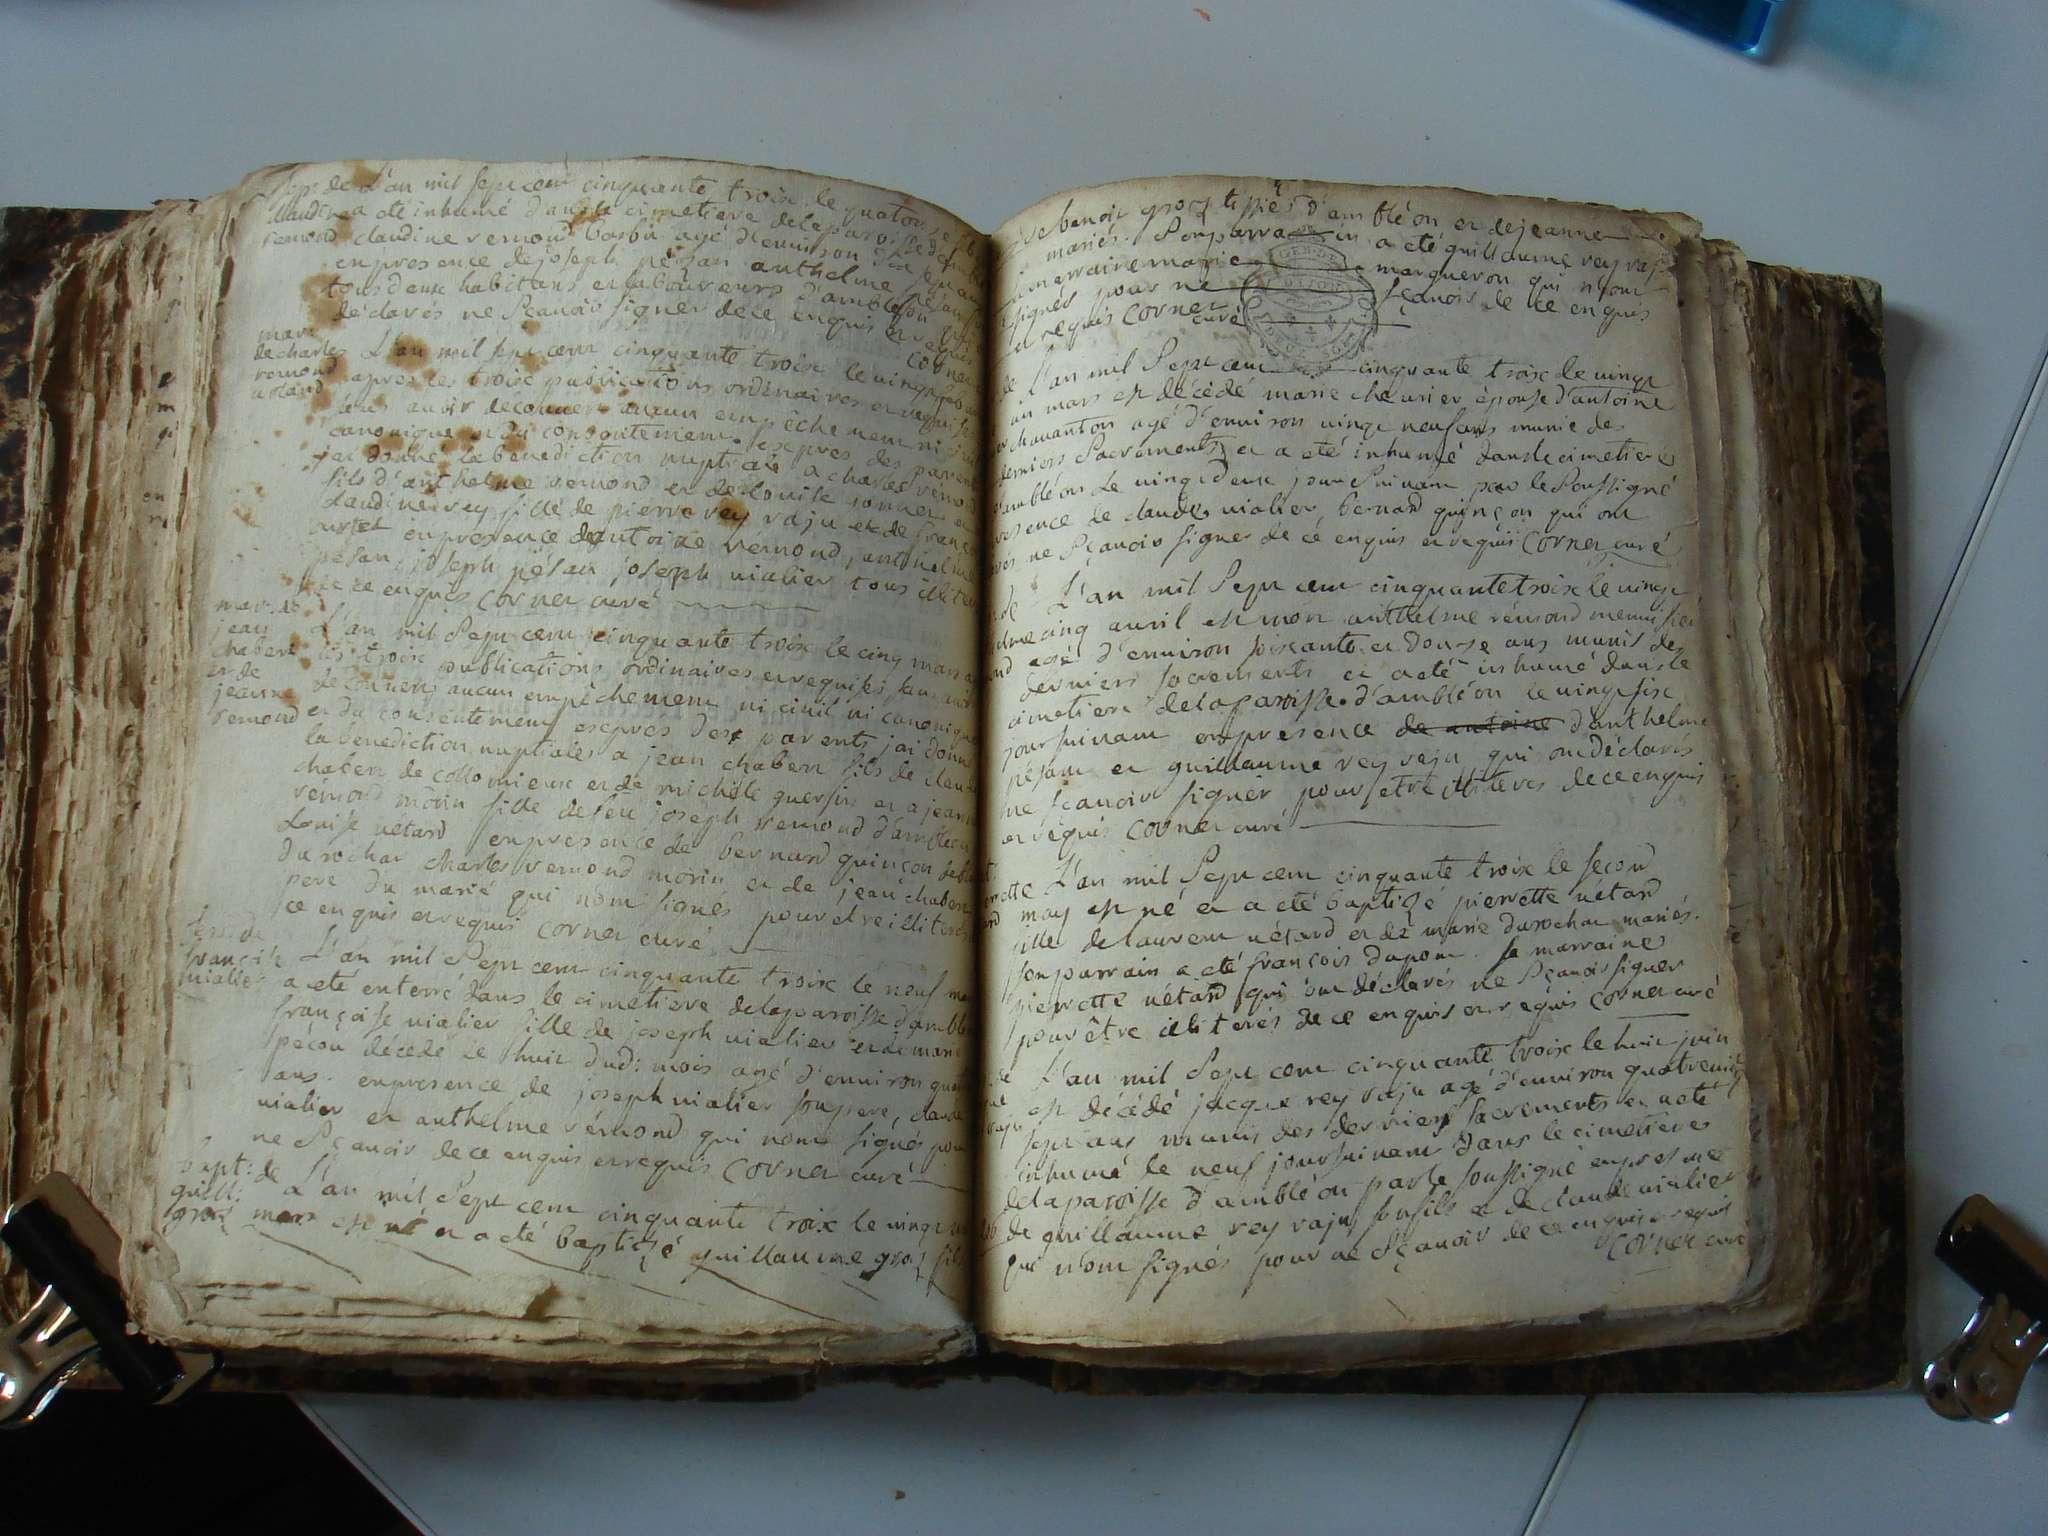 Sep: de L'an mil Sepn cent cinquante troix le quatorse
claudine a été inhumé dans le cimetiere de la paroisse d'amble
remond claudine remond agé d'environ
en presence de joseph pésan anthelme pésan
tous deux habitans et laboureurs d'ambléon
déclarés ne sçauoir signer de ce enquis et requis
corner
mari
de charles L'an mil sepn cent cinquante troix le vingt
remond apres les troix publications ordinaires et requises
sans auoir decouuert aucun empêchement ni ciuil
canonique et du consentement expres des parens
j'ai donné la benediction nuptiale a charles remond
fils d'anthelme remond et de louise jonner et
claudine rey fille de pierre rey raju et de
en presence d'antoine rémond, anthelme
pésan, joseph pésan joseph uialier tous illiterés
de ce enquis corner curé
mar: de
jean L'an mil Sepn cent cinquante troix le cinq mars
chabert les troix publications ordinaires et requises sans auoir
et de decouuert aucun empêchement ni ciuil ni canonique
jeanne
remond et du consentement exprés des parents j'ai donné
la benediction nuptiales a jean chabert fils de claude
chabert de collomieux et de michéle guersin et a jeanne
rémond morin fille de feu joseph remond d'ambléon
Louise uétard en presence de bernard guinçon
durochar charles remond morin et de jean chabert
pere du marié qui n'ont signés pour etre illiterés
de ce enquis et requis corner curé
Sep: de
françoise L'an mil Sepn cent cinquante troix le neuf mars
uialier a été enterré dans le cimetiere de la paroisse d'ambléon
françoise uialier fille de joseph uialier et de marie
péçou décédé le huit dud: mois agé d'enuiron quatre
ans. en presence de joseph uialier son pere, claude
uialier et anthelme rémond qui n'ont signés pour
ne Sçauoir de ce enquis et requis corner curé
bapt: de
guill: L'an mil Sepn cent cinquante troix le vingt
groz mars est né et a été baptizé guillaume groz fils
de benoit groz tissier d'ambléon et de jeanne
mariés. Son parrain a été guillaume rey raju
sa marraine marie margueron qui n'ont
signés pour ne sçauoir de ce enquis
et requis corner curé
L'an mil Sepn cent cinquante troix le vingt
un mars est décédé marie cheurier épouse d'antoine
chauanton agé d'enuiron vingt neuf ans munie des
derniers Sacrements et a été inhumé dans le cimetiere
d'ambléon le vingt deux jour Suiuant par le Soussigné
en presence de claude uialier, bernard guinçon qui ont
déclarés ne Sçauoir signer de ce enquis et requis corner curé
L'an mil Sepn cent cinquante troix le vingt
cinq auril est mort anthelme rémond menuisier
agé d'enuiron soixante et douze ans munis des
derniers sacrements et a été inhumé dans le
cimetiere de la paroisse d'ambléon le vingt six
jour suiuant en presence de antoine d'anthelme
pésan et guillaume rey raju qui ont déclarés
ne sçauoir signer pour etre illiterés de ce enquis
et requis corner curé
L'an mil Sepn cent cinquante troix le second
may est né et a été baptizé pierrette uétard
fille de laurent uétard et de marie durochar mariés.
son parrain a été françois dupont. Sa marraine
pierrette uétard qui ont déclarés ne Sçauoir signer
pour être illiterés de ce enquis et requis corner curé
L'an mil Sepn cent cinquante troix le huit juin
est décédé jacque rey raju agé d'enuiron quatre uingt
sept ans munis des derniers sacrements et a été
inhumé le neuf jour suiuant dans le cimetieres
de la paroisse d'ambléon par le soussigné en presence
de guillaume rey raju, son fils et de claude uialier
qui n'ont signés pour ne Sçauoir de ce enquis et requis
corner curé